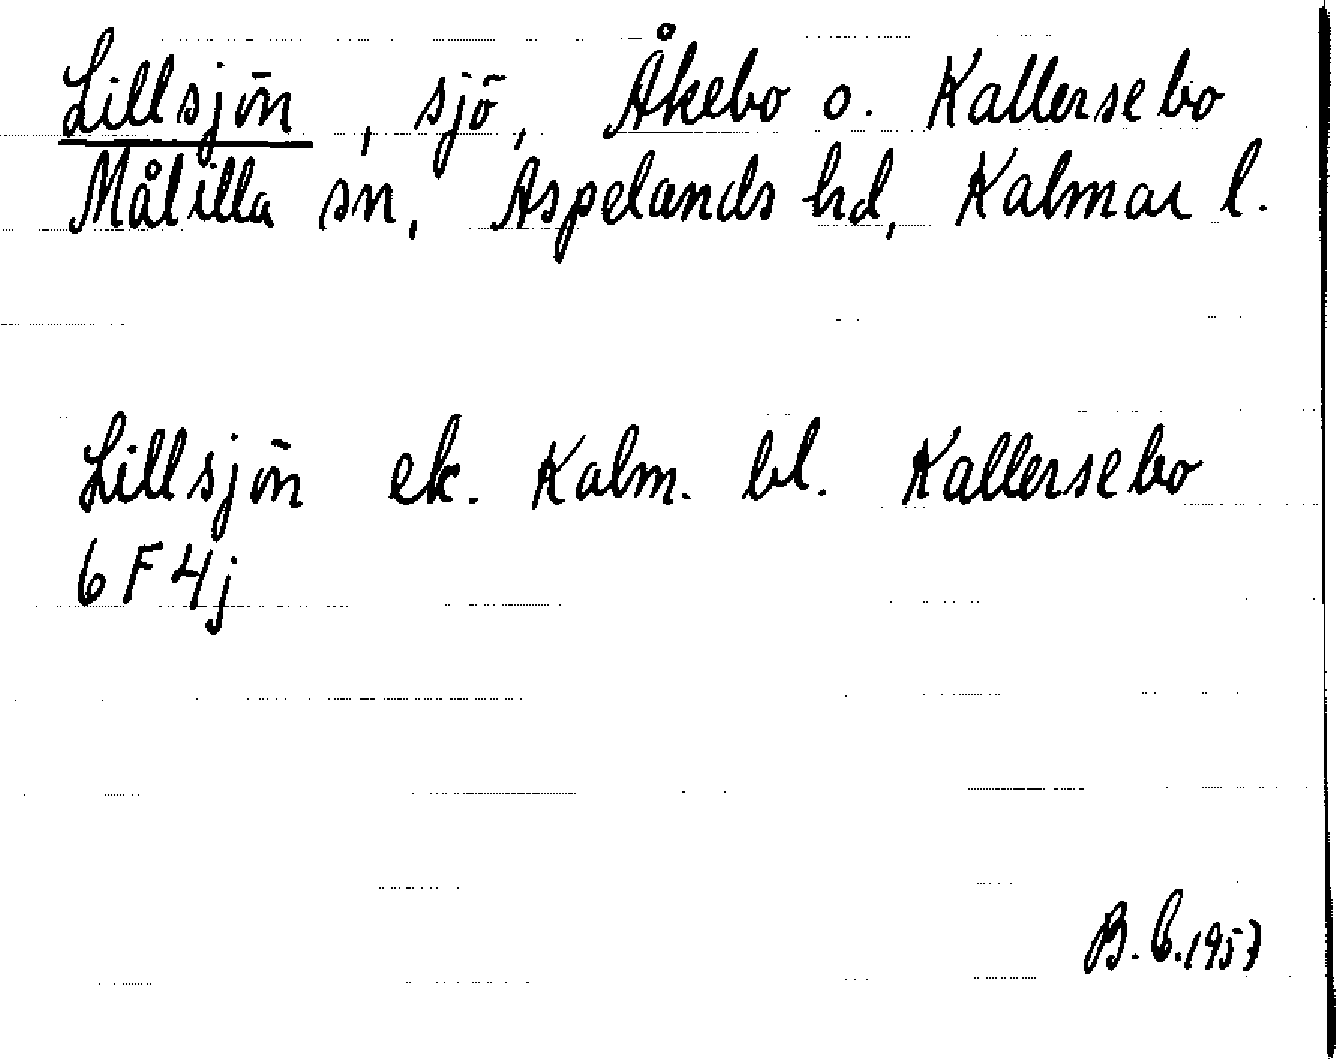 Lillsjön, sjö, Åkebo o. Kallersebo
Målilla sn, Aspelands hd, Kalmar l.
Lillsjön ek. Kalm. bl. Kallersebo
6 F 4j
B. C. 1957